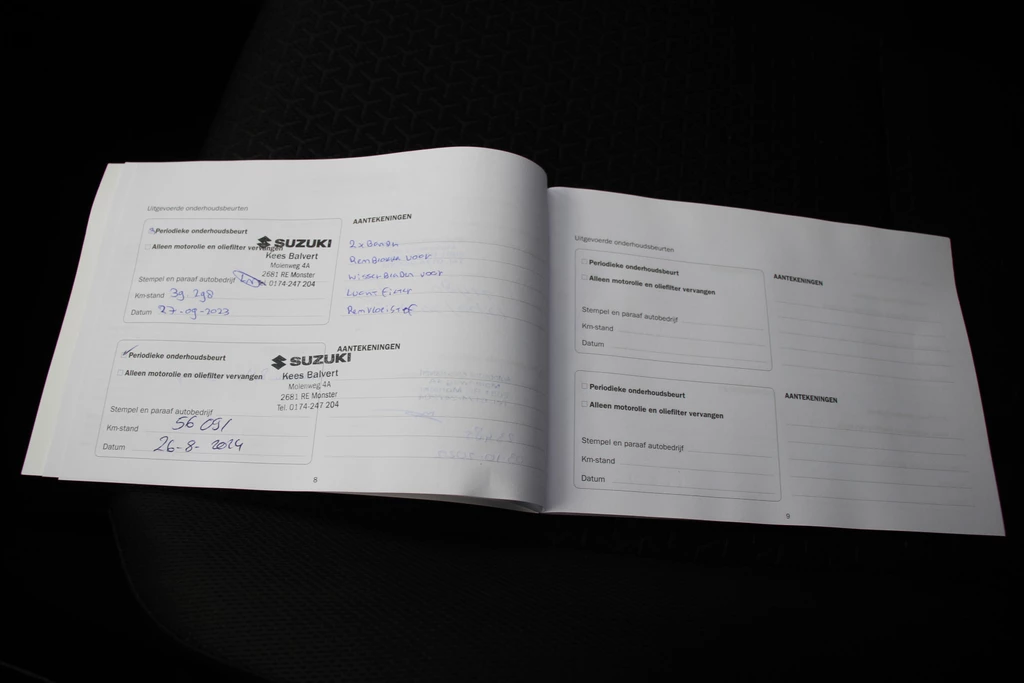 Uitgevoerde onderhoudsbeurten
Periodieke onderhoudsbeurt
Alleen motorolie en oliefilter vervangen
SUZUKI
Kees Balvert
Molenweg 4A
2681 RE Monster
Tel. 0174-247 204
Stempel en paraaf autobedrijf
Km-stand 39 298
Datum 27-09-2023
AANTEKENINGEN
2x Banden
Remblokken voor
Wisserbladen voor
Lucht Filter
Remvloeistof
Periodieke onderhoudsbeurt
Alleen motorolie en oliefilter vervangen
SUZUKI
Kees Balvert
Molenweg 4A
2681 RE Monster
Tel. 0174-247 204
Stempel en paraaf autobedrijf
Km-stand 56 091
Datum 26-8-2024
AANTEKENINGEN
8
Uitgevoerde onderhoudsbeurten
Periodieke onderhoudsbeurt
Alleen motorolie en oliefilter vervangen
Stempel en paraaf autobedrijf
Km-stand
Datum
AANTEKENINGEN
Periodieke onderhoudsbeurt
Alleen motorolie en oliefilter vervangen
Stempel en paraaf autobedrijf
Km-stand
Datum
AANTEKENINGEN
9